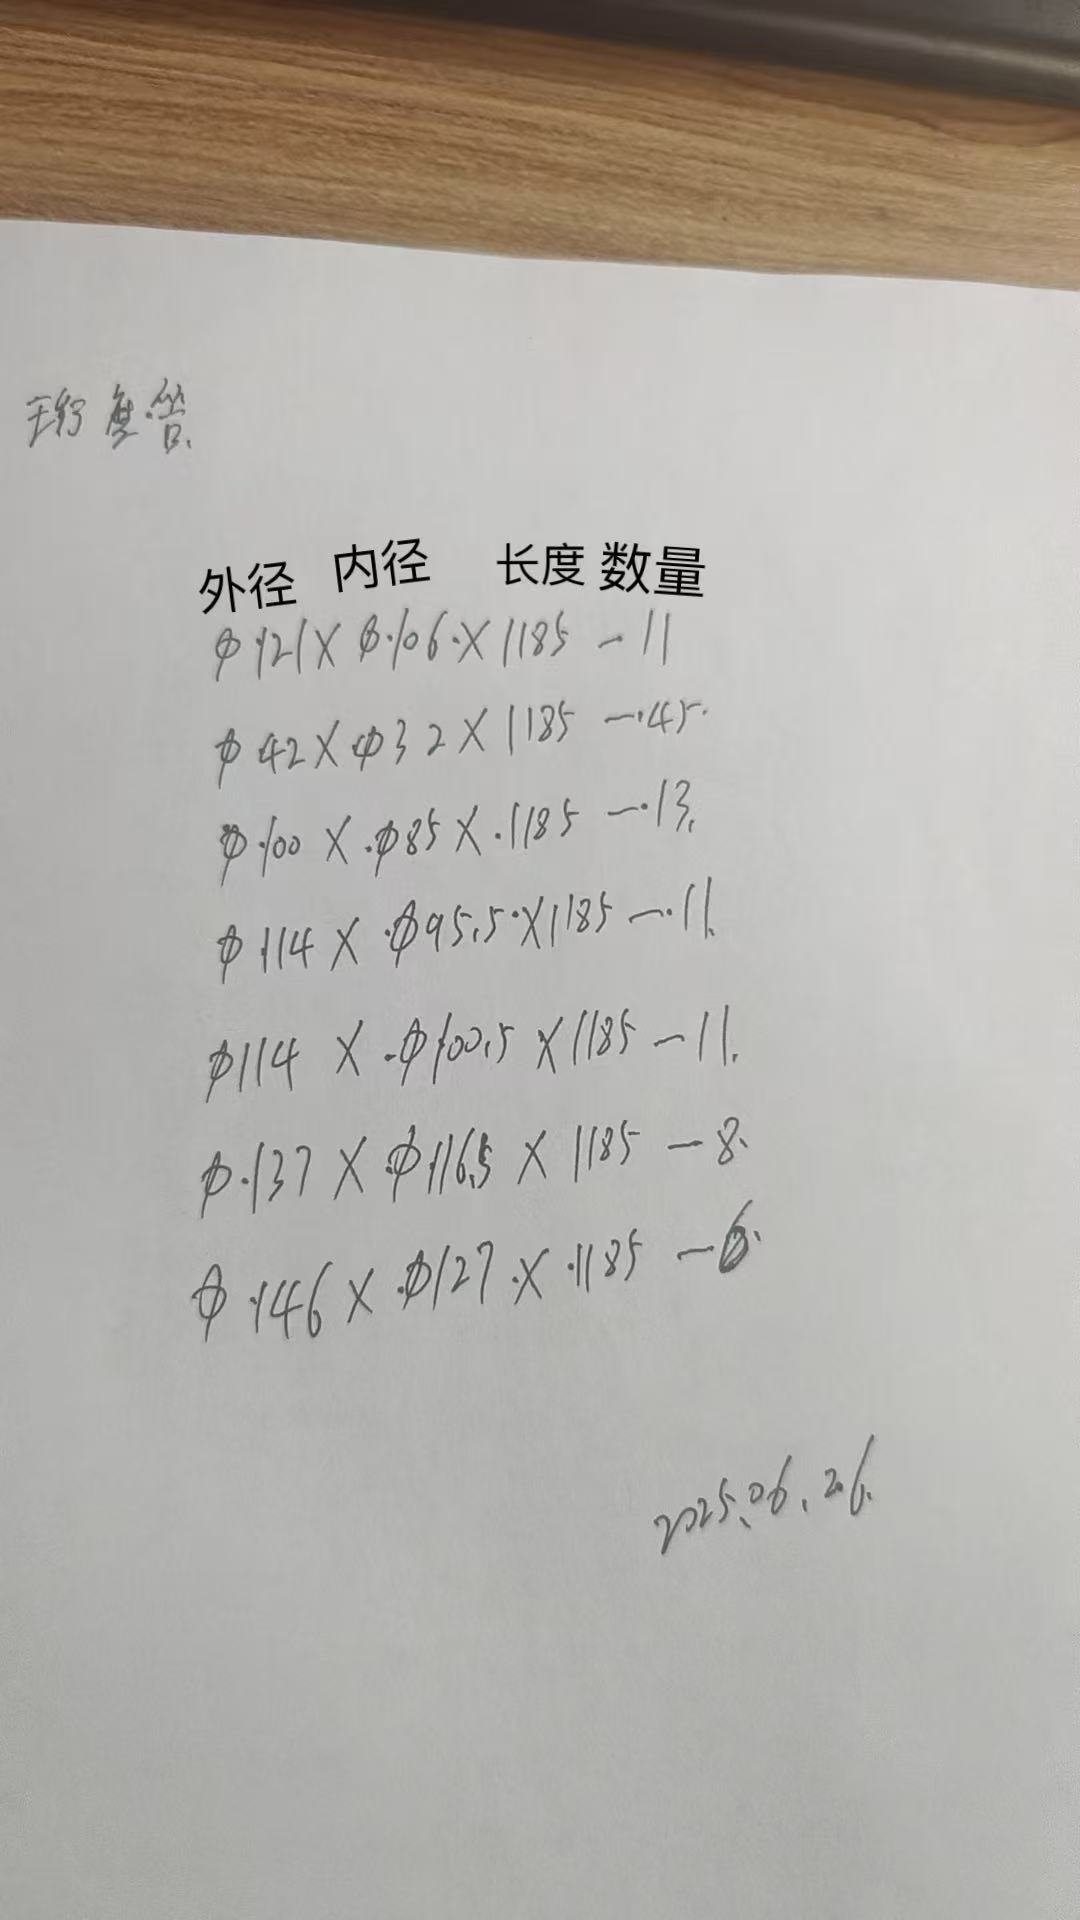 珩磨管
外径 内径 长度 数量
φ121×φ106×1185-11
φ42×φ32×1185-45
φ100×φ85×1185-13
φ114×φ95.5×1185-11
φ114×φ100.5×1185-11
φ137×φ116.5×1185-8
φ146×φ127×1185-6
2025.06.26